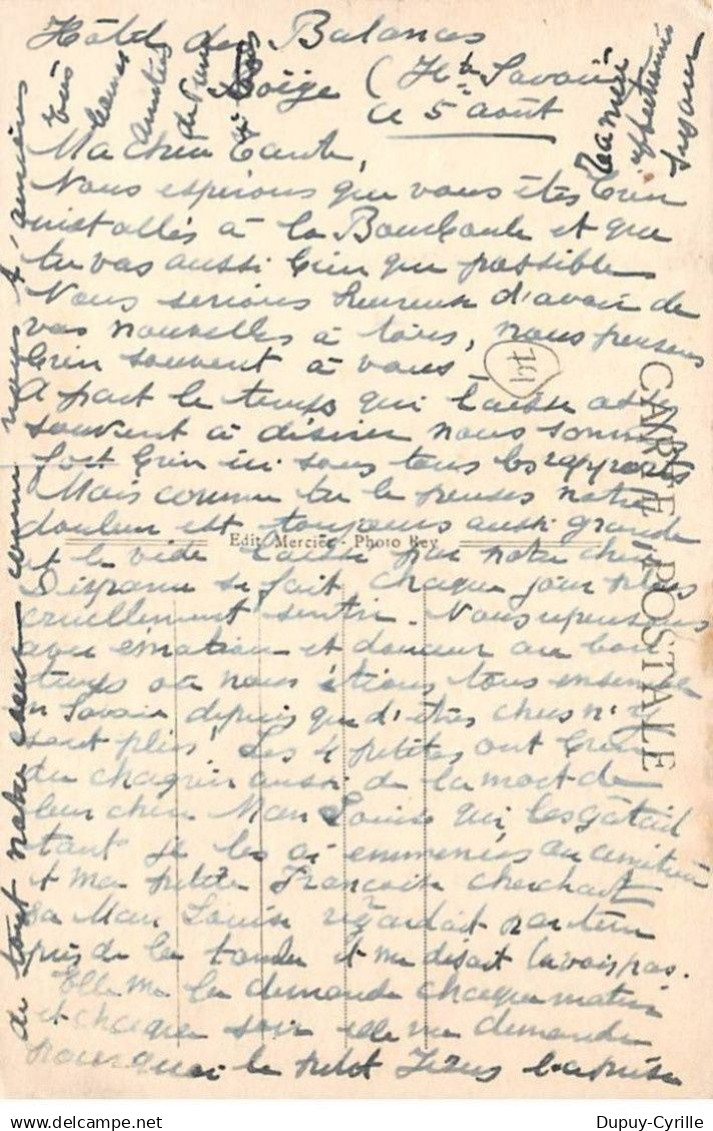 Hôtel des Balances
Boëge (Hte Savoie
ce 5 août
Ma chère Tante,
Nous espérons que vous êtes bien
installés à la Bourboule et que
tu vas aussi bien que possible
Nous serions heureux d'avoir de
vos nouvelles à tous, nous pensons
bien souvent à vous -
A part le temps qui laisse assez
souvent à désirer nous sommes
fort bien ici sous tous les rapports
Mais comme tu le penses notre
douleur est toujours aussi grande
et le vide laissé par notre chère
Disparue se fait chaque jour plus
cruellement sentir. Nous repensons
avec émotion et douceur au bon
temps où nous étions tous ensemble
en Savoie depuis que d'êtres chers n'y
sont plus! Les 4 petites ont bien
du chagrin aussi de la mort de
leur chère Man Louise qui les gâtait
tant je les ai emmenées au cimetière
et ma petite Françoise cherchant
sa Man Louise regardait par terre
près de la tombe et me disait la vois pas.
Elle me la demande chaque matin
et chaque soir elle me demande
pourquoi le petit Jésus l'a prise
de tout notre cœur comme nous t'aimons
Ta nièce
affectionnée
Suzanne
147
CARTE POSTALE
Edit. Mercier - Photo Rey
Dupuy-Cyrille